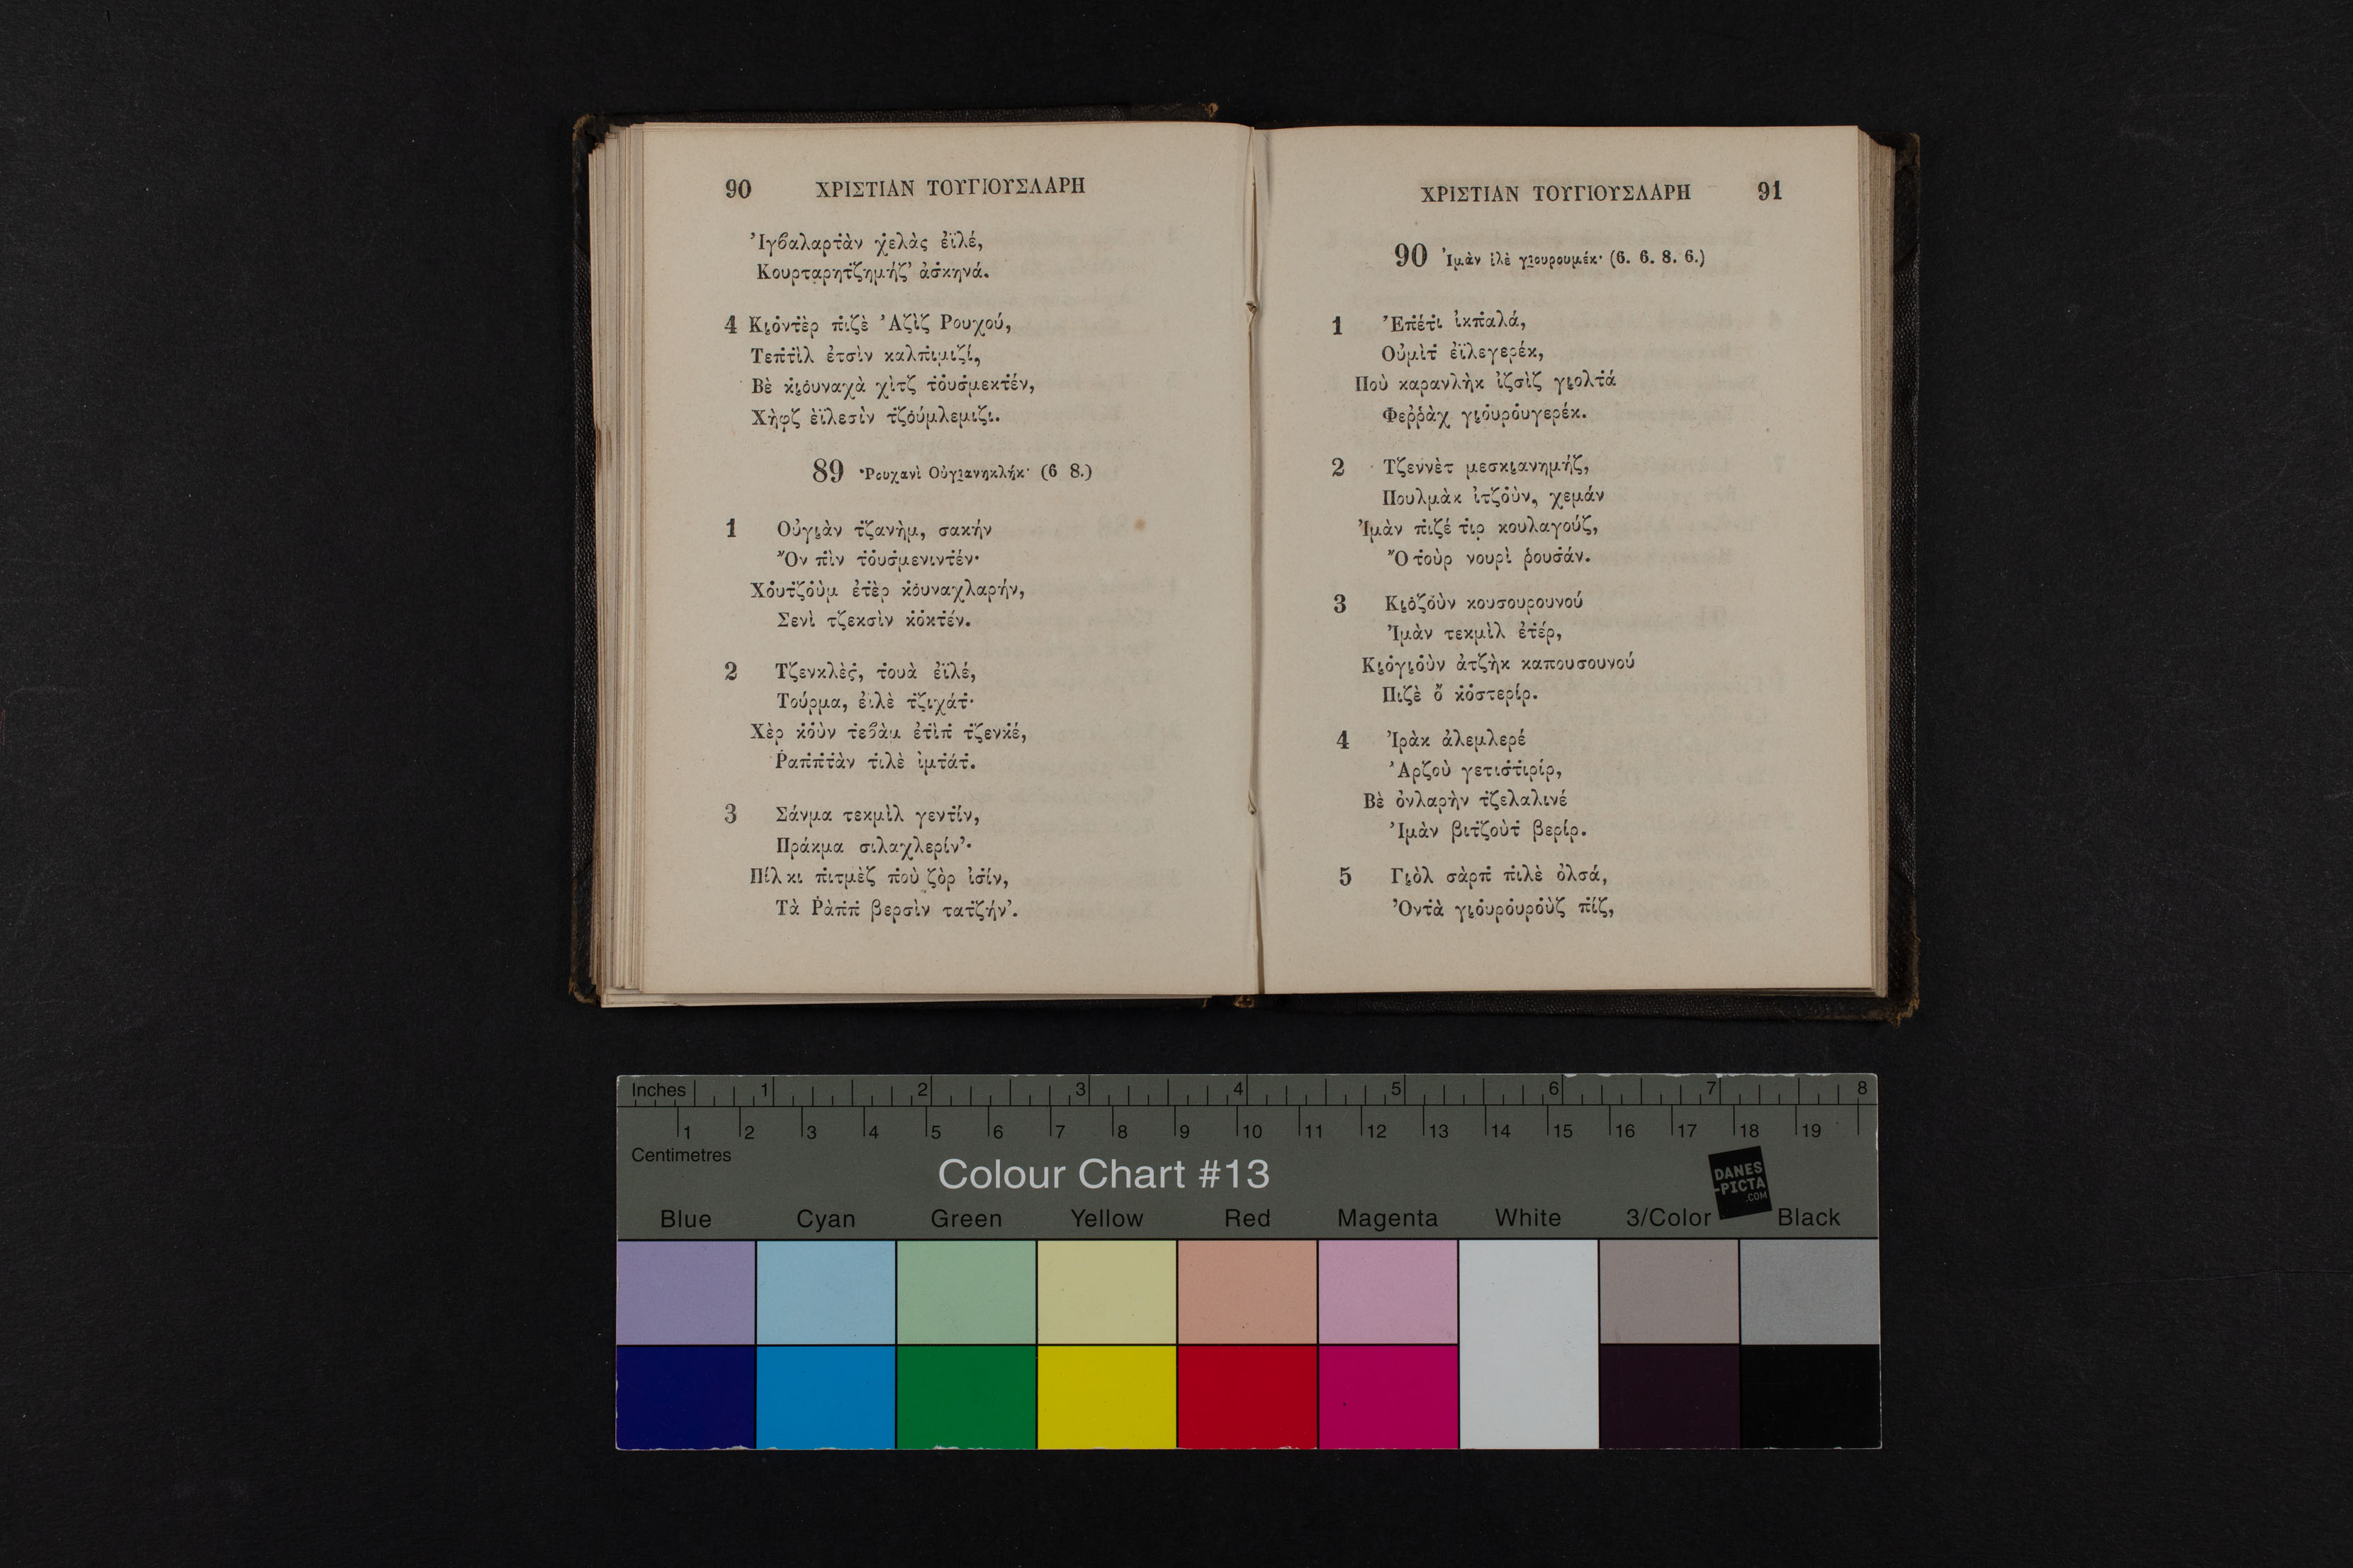 90 ΧΡΙΣΤΙΑΝ ΤΟΥΓΙΟΥΣΛΑΡΗ
Ἰγβαλαρτ̇ὰν χ̇ελὰς ἐϊλέ,
Κουρταρητ̇ζημήζ’ ἀσ̇κηνά.
4 Κι̨όντ̇ὲρ π̇ιζὲ Ἀζὶζ Ρουχού,
Τεπτ̇ὶλ ἐτσὶν καλπ̇ιμιζί,
Βὲ κι̨ὀυναχὰ χὶτζ τ̇ὀυσ̇μεκτ̇έν,
Χὴφζ ἐϊλεσὶν τ̇ζὀύμλεμιζι.
89 Ῥουχανὶ Οὐγι̨ανηκλήκ· (6 8.)
1 Οὐγι̨ὰν τ̇ζανὴμ, σακήν
Ὂν π̇ὶν τ̇ὀυσ̇μενιντ̇έν·
Χὀυτ̇ζὀὺμ ἐτ̇ὲρ κ̇ὀυναχλαρήν,
Σενὶ τζεκσὶν κ̇ὀκτ̇έν.
2 Τζενκλὲς̇, τ̇ουὰ ἐϊλέ,
Τούρμα, ἐϊλὲ τ̇ζιχάτ̇·
Χὲρ κ̇ὀὺν τ̇εβὰμ ἐτ̇ὶπ̇ τ̇ζενκ̇έ,
Ῥαπ̇π̇τ̇ὰν τ̇ιλὲ ἰμτ̇άτ̇.
3 Σάνμα τεκμὶλ γεντ̇ίν,
Πράκμα σιλαχλερίν’·
Πίλ κι π̇ιτμὲζ π̇οὺ ζὸρ ἰσ̇ίν,
Τὰ Ῥὰπ̇π̇ βερσὶν τατ̇ζήν’.
ΧΡΙΣΤΙΑΝ ΤΟΥΓΙΟΥΣΛΑΡΗ 91
90 Ἰμὰν ἰλὲ γι̨ουρουμέκ· (6. 6. 8. 6.)
1 Ἐπ̇έτ̇ι ἰκπ̇αλά,
Οὐμὶτ̇ ἐϊλεγερέκ,
Ποὺ καρανλὴκ ἰζσὶζ γι̨ολτ̇ά
Φεῤῥὰχ γι̨ὀυρὀυγερέκ.
2 Τζεννὲτ μεσκι̨ανημήζ,
Πουλμὰκ ἰτζὀὺν, χεμάν
Ἰμὰν π̇ιζέ τ̇ιρ κουλαγούζ,
Ὂ τ̇οὺρ νουρὶ ῥουσ̇άν.
3 Κι̨ὀζὀὺν κουσουρουνού
Ἰμὰν τεκμὶλ ἐτ̇έρ,
Κι̨ὀγι̨ὀὺν ἀτζὴκ καπουσουνού
Πιζὲ ὂ κ̇ὀστερίρ.
4 Ἰρὰκ ἀλεμλερέ
Ἀρζοὺ γετισ̇τ̇ιρίρ,
Βὲ ὀνλαρὴν τ̇ζελαλινέ
Ἰμὰν βιτ̇ζοὺτ̇ βερίρ.
5 Γι̨ὸλ σὰρπ̇ π̇ιλὲ ὀλσά,
Ὀντ̇ὰ γι̨ὀυρὀυρὀὺζ π̇ίζ,
Inches 1 2 3 4 5 6 7 8
1 2 3 4 5 6 7 8 9 10 11 12 13 14 15 16 17 18 19
Centimetres
Colour Chart #13
DANES
-PICTA
.COM
Blue Cyan Green Yellow Red Magenta White 3/Color Black